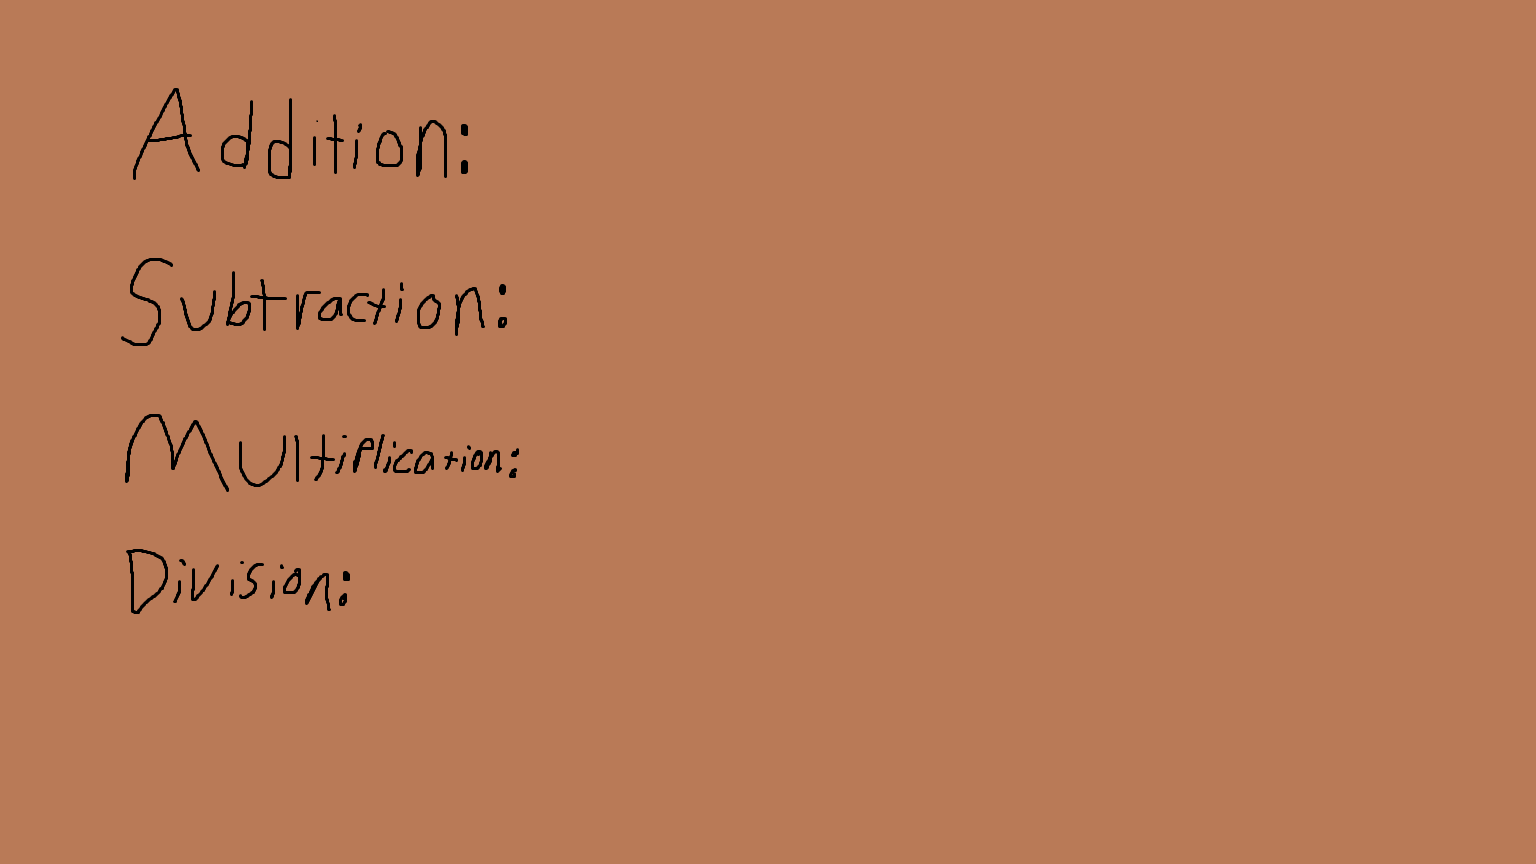 Addition:
Subtraction:
Multiplication:
Division: